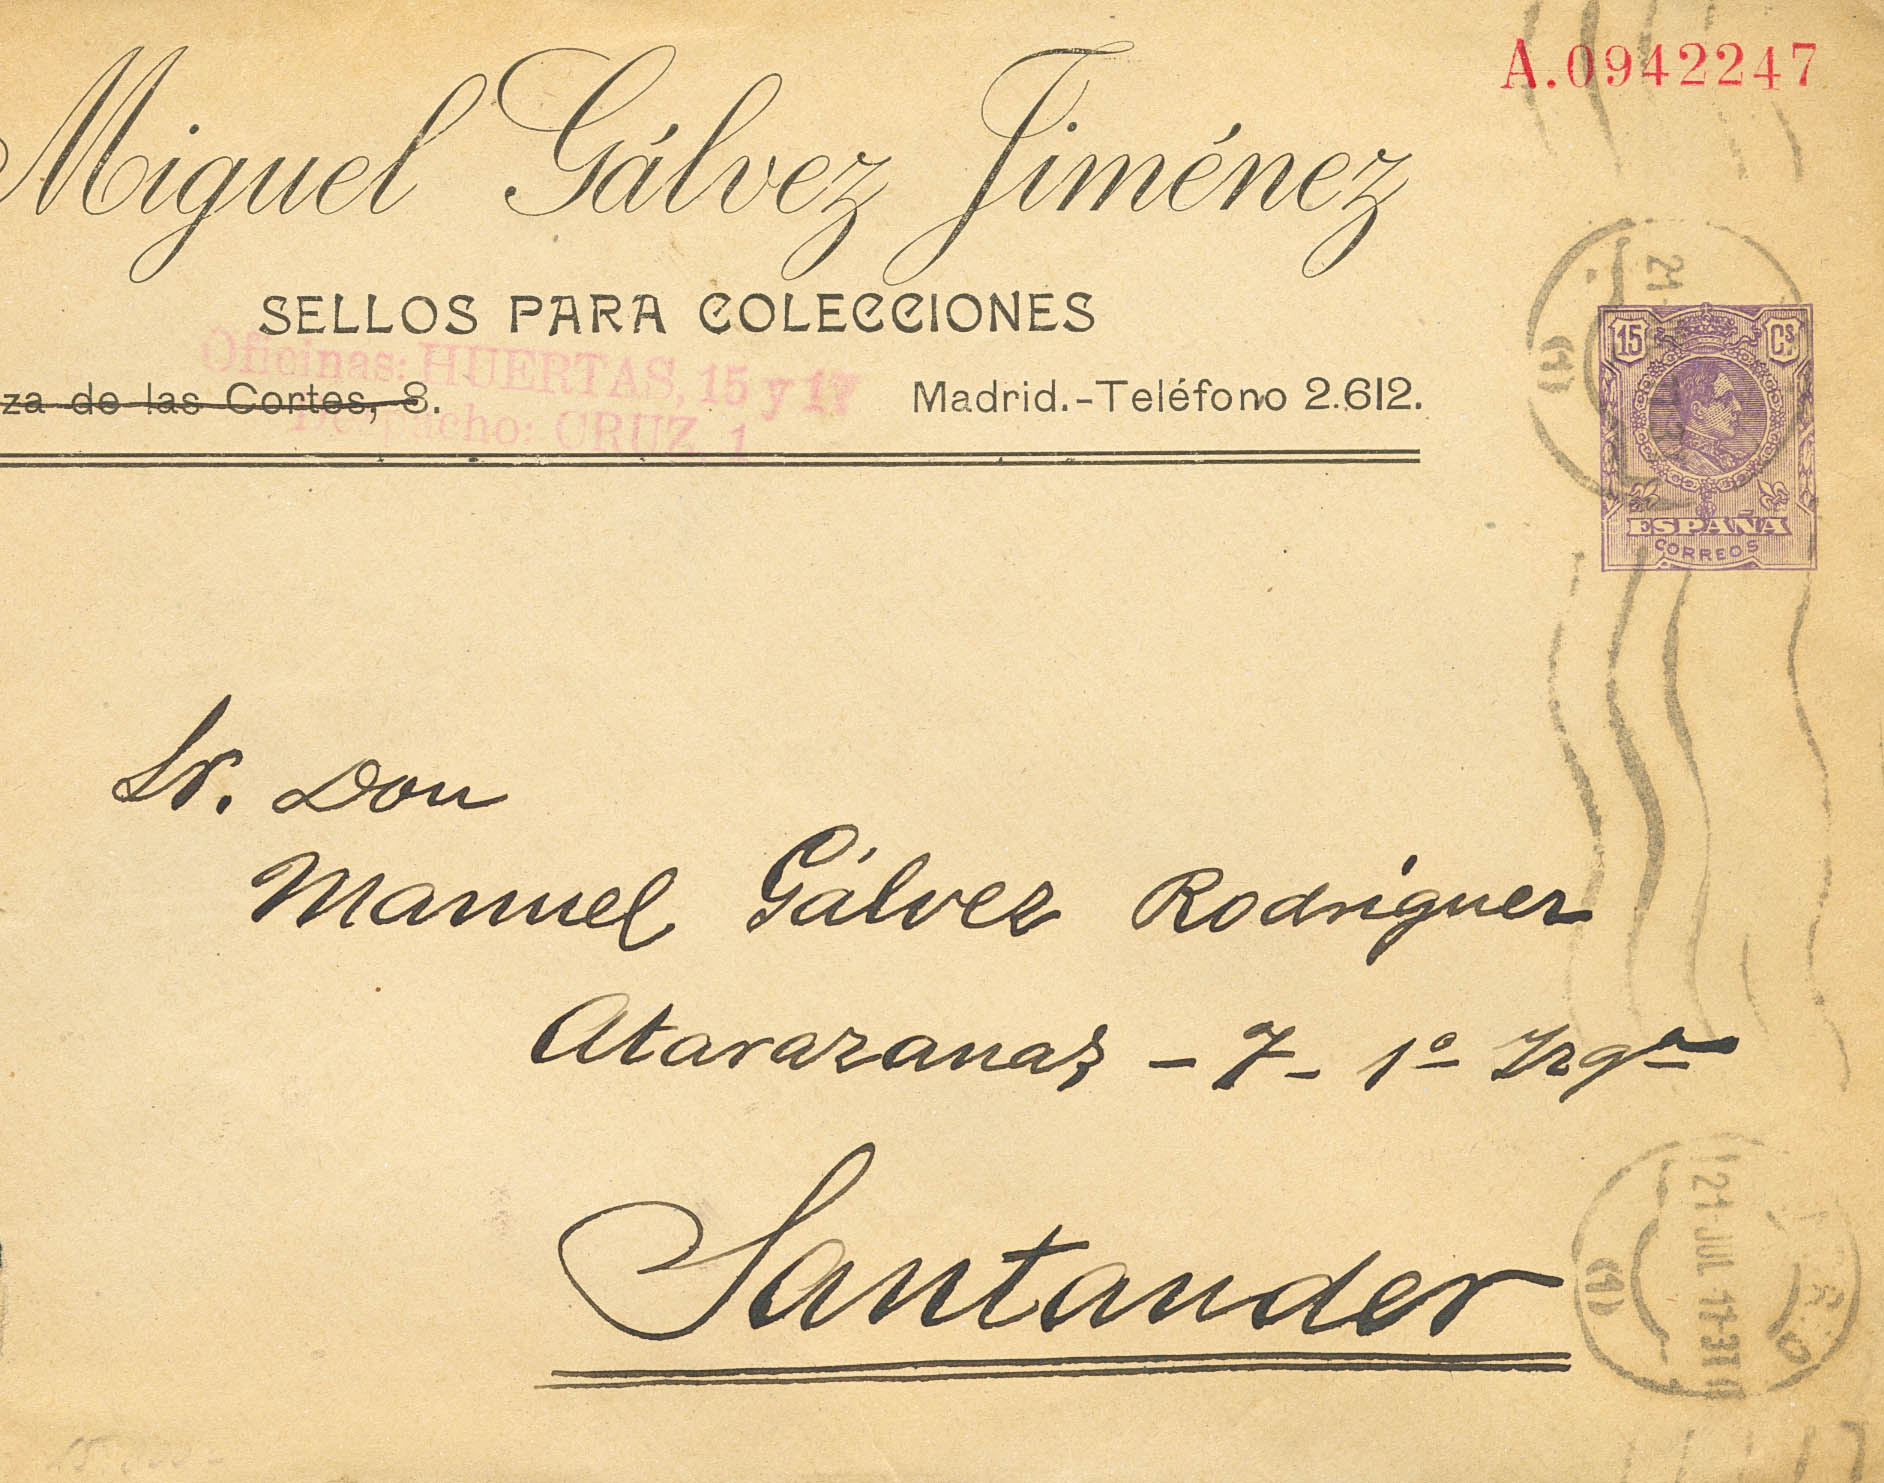 A.0942247
Miguel Gálvez Jiménez
SELLOS PARA COLECCIONES
Oficinas: HUERTAS, 15 y 17
za de las Cortes, 8.
Madrid.-Teléfono 2.612.
Despacho: CRUZ, 1
15 Cs
ESPAÑA
CORREOS
Sr. Don
Manuel Gálvez Rodríguez
Atarazanas - 7 - 1º Izqª
Santander
21
(1)
21·JUL 11
(1)